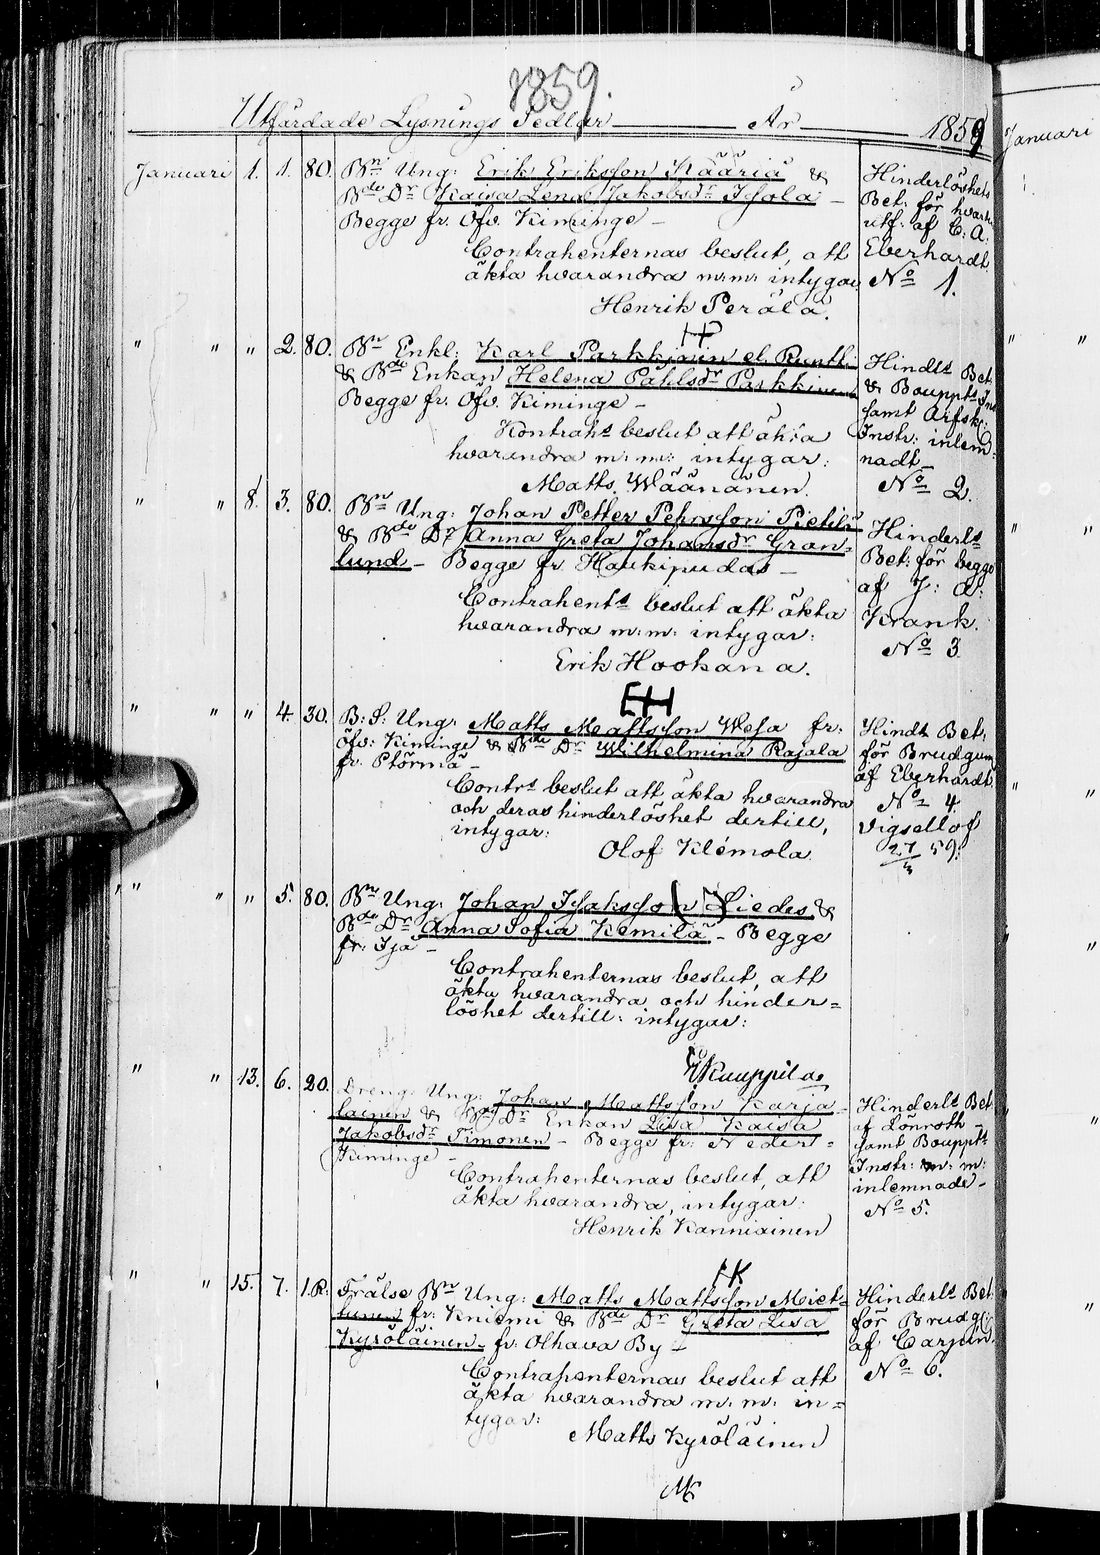 1859.
Utfärdade Lysnings Sedlar År 1859
Januari 1. 1. 80. Bn Ung: Erik Eriksson Kääriä &
Bde Dr Kaisa Lena Jakobsdr Isola –
Begge fr. Öfv. Kiminge –
Contrahenternas beslut, att
äkta hvarandra m:m: intygar
Henrik Perälä.
Hinderlöshets
Bet: för hvart
utf: af C: A:
Eberhardt.
No 1.
" " " 2. 80. Bn Enkl: Karl Parkkinen el Runtti
& Bde Enkan Helena Påhlsdr Parkkinen
Begge fr. Öfv. Kiminge –
Kontrahs beslut att äkta
hvarandra m: m: intygar:
Matts Wäänänen.
Hinds Bet:
& Bouppts Ins
samt Arfsk:
Instr: inlem=
nadt –
No 2.
" " 8. 3. 80. Bn Ung: Johan Petter Pehrsson Pietilä
& Bde Dr Anna Greta Johansdr Gran=
lund – Begge fr Haukipudas –
Contrahents beslut att äkta
hvarandra m: m: intygar:
Erik Hookana.
Hinderls
Bet: för begge
af J: A:
Krank.
No 3
" " " 4. 30. B: S: Ung: Matts Mattsson Wesa fr:
Öfv: Kiminge & Bde Dr Wilhelmina Rajala
fr.
Contrs beslut att äkta hvarandra
och deras hinderlöshet dertill,
intygar:
Olof Klemola.
Hinds Bet:
för Brudgum
af Eberhardt
No 4.
Vigsellof
27/3 59:
" " " 5. 80. Bn Ung: Johan Isaksson Liedes &
Bde Dr Anna Sofia Kemilä – Begge
fr: Ijå –
Contrahenternas beslut, att
äkta hvarandra och hinder=
löshet dertill: intygar:
Kauppila
" " 13. 6. 20. Dreng. Ung: Johan Mattsson Karja
lainen & Enkan Lisa Kaisa
Jakobsdr Timonen – Begge fr: Neder=
Kiminge –
Contrahenternas beslut, att
äkta hvarandra, intygar:
Henrik Kanniainen
Hinderls Bet
af Lönroth –
samt Bouppts
Instr: m: m:
inlemnade –
No 5.
" " 15. 7. 1.R: Frälse Bn Ung: Matts Mattsson Miet=
tunen fr: Kniemi & Bde Dr Greta Lisa
Kyröläinen – fr: Olhava By –
Contrahenternas beslut att
äkta hvarandra m: m: in=
tygar:
Matts Kyröläinen
Hinderls Bet
för Brudg:
af Carpén.
No 6.
Januari